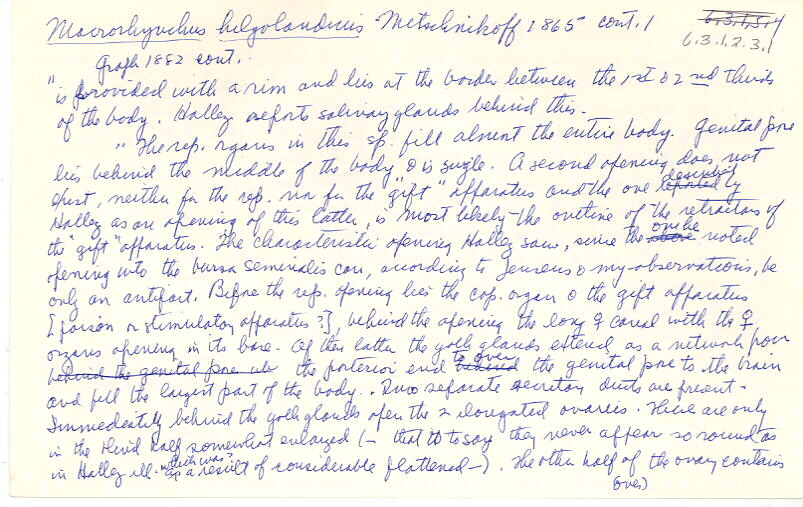 Macrorhynchus helgolandicus Metschnikoff 1865 cont. 1
6.3.1.5.4
6.3.1.2.3.1
Graff 1882 cont.
"is provided with a rim and lies at the border between the 1st & 2nd thirds
of the body. Hallez reports salivary glands behind this.
"The rep. organs in this sp. fill almost the entire body. Genital pore
lies behind the middle of the body & is single. A second opening does not
exist, neither for the rep. nor for the "gift" apparatus and the one reported described by
Hallez as an opening of this latter, is most likely the outline of the retractors of
the "gift" apparatus. The characteristic opening Hallez saw, since the above one he noted
opening into the bursa seminalis can, according to Jensens & my observations, be
only an antifact. Before the rep. opening lies the cop. organ & the gift apparatus
[poison or stimulatory apparatus?], behind the opening the long ♀ canal with the ♀
organs opening in its base. Of these latter the yolk glands extend as a network from
behind the genital pore the posterior end behind to over the genital pore to the brain
and fill the largest part of the body. Two separate secretory ducts are present -
Immediately behind the yolk glands open the 2 elongated ovaries. These are only
in the blind half somewhat enlarged (- that is to say they never appear so round as
in Hallez ill. which was? as a result of considerable flattened -). The other half of the ovary contains
(over)